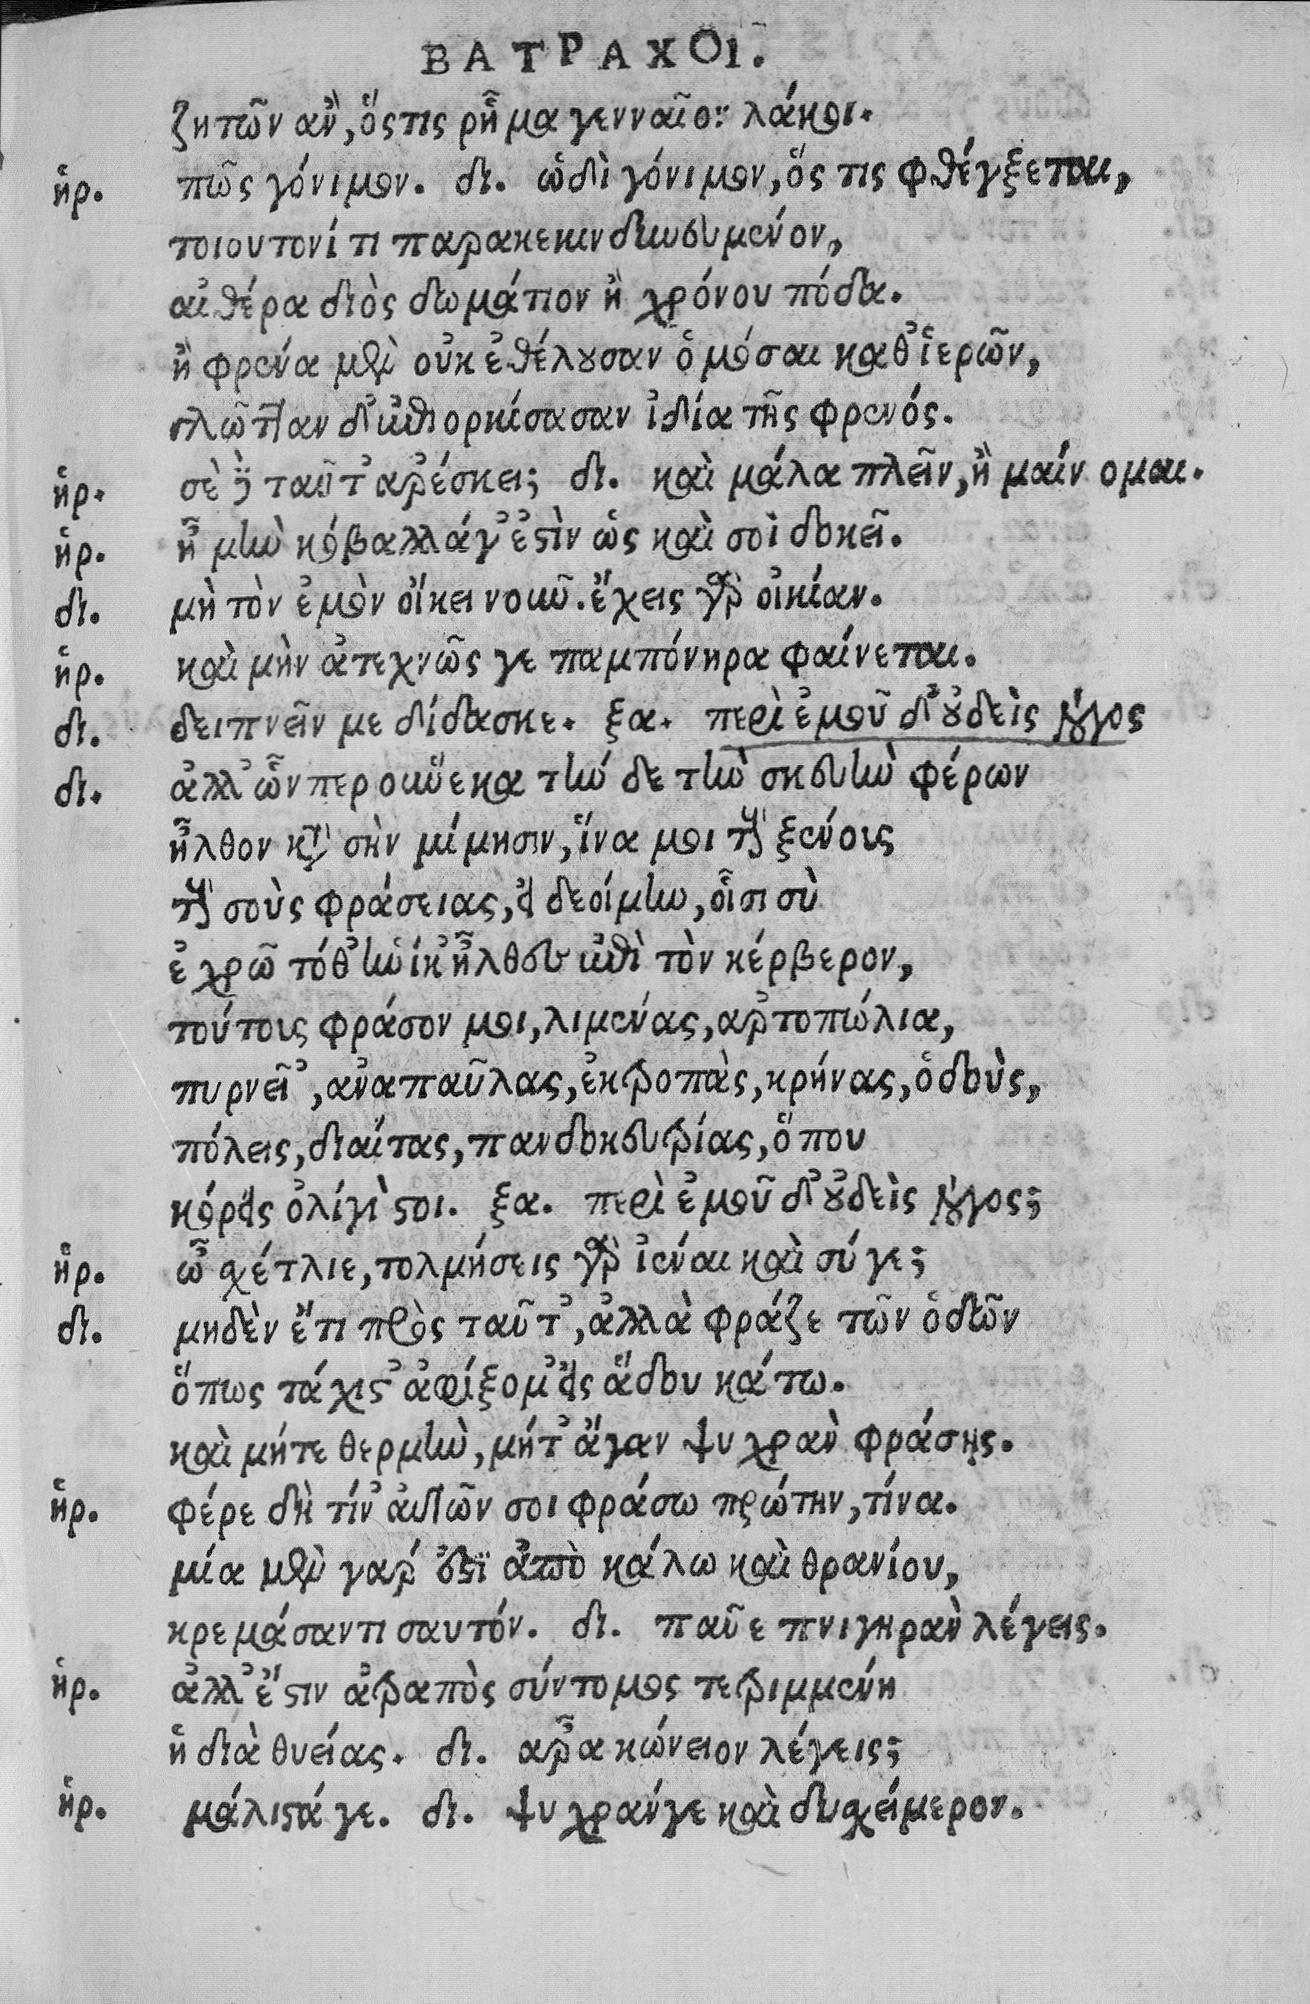 ΒΑΤΡΑΧΟΙ.
ζητῶν ἂν, ὅςτις ῥῆμα γενναῖον λάκοι.
ἡρ. πῶς γόνιμον. δι. ὡδὶ γόνιμον, ὅς τις φθέγξεται,
τοιουτονί τι παρακεκινδυνευμένον,
αἰθέρα διὸς δωμάτιον ἢ χρόνου πόδα.
ἢ φρένα μὲν οὐκ ἐθέλουσαν ὀμόσαι καθ' ἱερῶν,
γλῶτταν δ' ἐπιορκήσασαν ἰδίᾳ τῆς φρενός.
ἡρ. σὲ δὲ ταῦτ' ἀρέσκει; δι. καὶ μάλα πλεῖν, ἢ μαίνομαι.
ἡρ. ἦ μὴν κόβαλλάγ' ἐστὶν ὡς καὶ σοὶ δοκεῖ.
δι. μὴ τὸν ἐμὸν οἴκει νοῦν. ἔχεις γὰρ οἰκίαν.
ἡρ. καὶ μὴν ἀτεχνῶς γε παμπόνηρα φαίνεται.
δι. δειπνεῖν με δίδασκε. ξα. περὶ ἐμοῦ δ' οὐδεὶς λόγος
δι. ἀλλ' ὧνπερ οὕνεκα τήν δε τὴν σκευὴν φέρων
ἦλθον κατὰ σὴν μίμησιν, ἵνα μοι τοὺς ξένους
τοὺς σοὺς φράσειας, εἰ δεοίμην, οἷσι σὺ
ἐχρῶ τόθ' ἡνίκ' ἦλθες ἐπὶ τὸν κέρβερον,
τούτους φράσον μοι, λιμένας, ἀρτοπώλια,
πορνεῖ', ἀναπαύλας, ἐκτροπὰς, κρήνας, ὁδοὺς,
πόλεις, διαίτας, πανδοκευτρίας, ὅπου
κόρεις ὀλίγιστοι. ξα. περὶ ἐμοῦ δ' οὐδεὶς λόγος;
ἡρ. ὦ σχέτλιε, τολμήσεις γὰρ ἰέναι καὶ σύ γε;
δι. μηδὲν ἔτι πρὸς ταῦτ', ἀλλὰ φράζε τῶν ὁδῶν
ὅπως τάχιστ' ἀφίξομεθ' εἰς ᾅδου κάτω.
καὶ μήτε θερμὴν, μήτ' ἄγαν ψυχρὰν φράσῃς.
ἡρ. φέρε δὴ τίν' αὐτῶν σοι φράσω πρώτην, τίνα.
μία μὲν γάρ ἐστιν ἀπὸ κάλω καὶ θρανίου,
κρεμάσαντι σαυτόν. δι. παῦε πνιγηρὰν λέγεις.
ἡρ. ἀλλ' ἔστιν ἀτραπὸς σύντομος τετριμμένη
ἡ διὰ θυείας. δι. ἆρα κώνειον λέγεις;
ἡρ. μάλιστά γε. δι. ψυχράν γε καὶ δυσχείμερον.